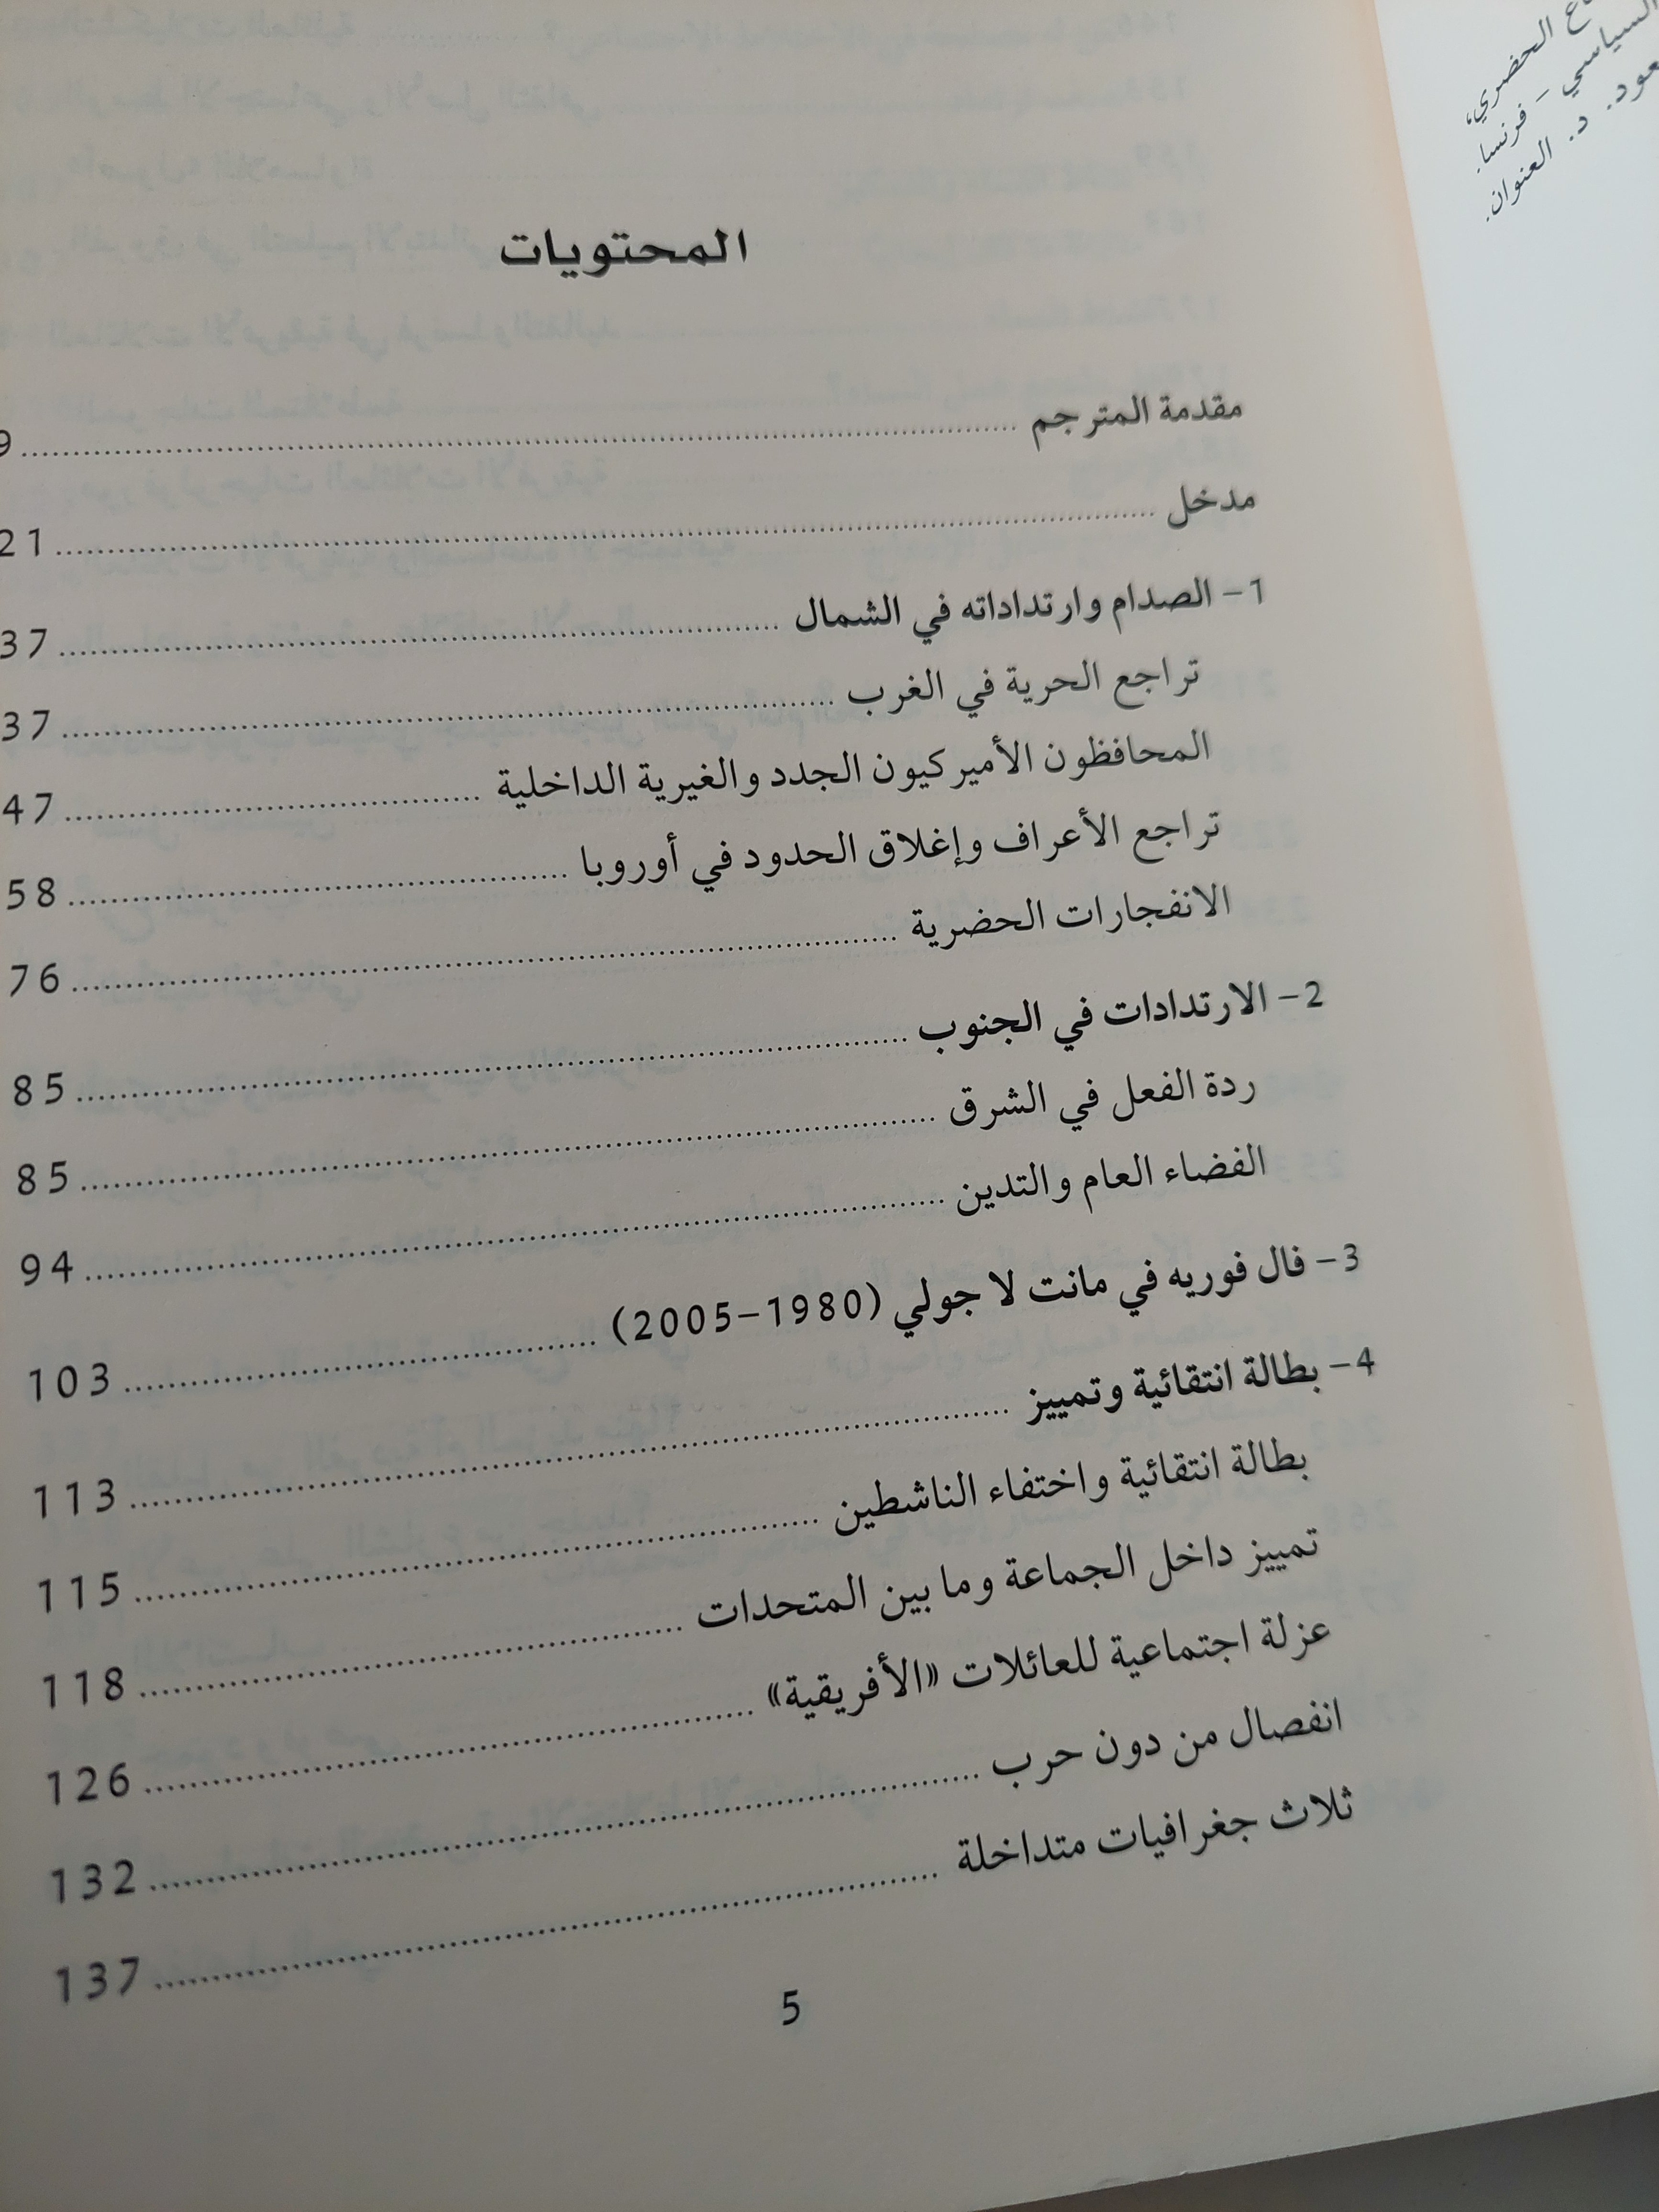 المحتويات
مقدمة المترجم ........ 9
مدخل ........ 21
1- الصدام وارتداداته في الشمال ........ 37
تراجع الحرية في الغرب ........ 37
المحافظون الأميركيون الجدد والغيرية الداخلية ........ 47
تراجع الأعراف وإغلاق الحدود في أوروبا ........ 58
الانفجارات الحضرية ........ 76
2- الارتدادات في الجنوب ........ 85
ردة الفعل في الشرق ........ 85
الفضاء العام والتدين ........ 94
3- فال فوريه في مانت لا جولي (1980-2005) ........ 103
4- بطالة انتقائية وتمييز ........ 113
بطالة انتقائية واختفاء الناشطين ........ 115
تمييز داخل الجماعة وما بين المتحدات ........ 118
عزلة اجتماعية للعائلات «الأفريقية» ........ 126
انفصال من دون حرب ........ 132
ثلاث جغرافيات متداخلة ........ 137
5
الحضري،
السياسي - فرنسا.
د. العنوان.